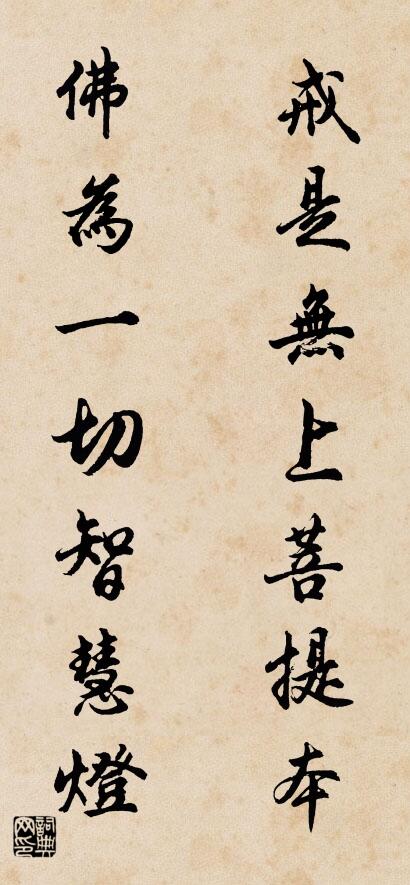 戒是無上菩提本
佛為一切智慧燈
詞典网印